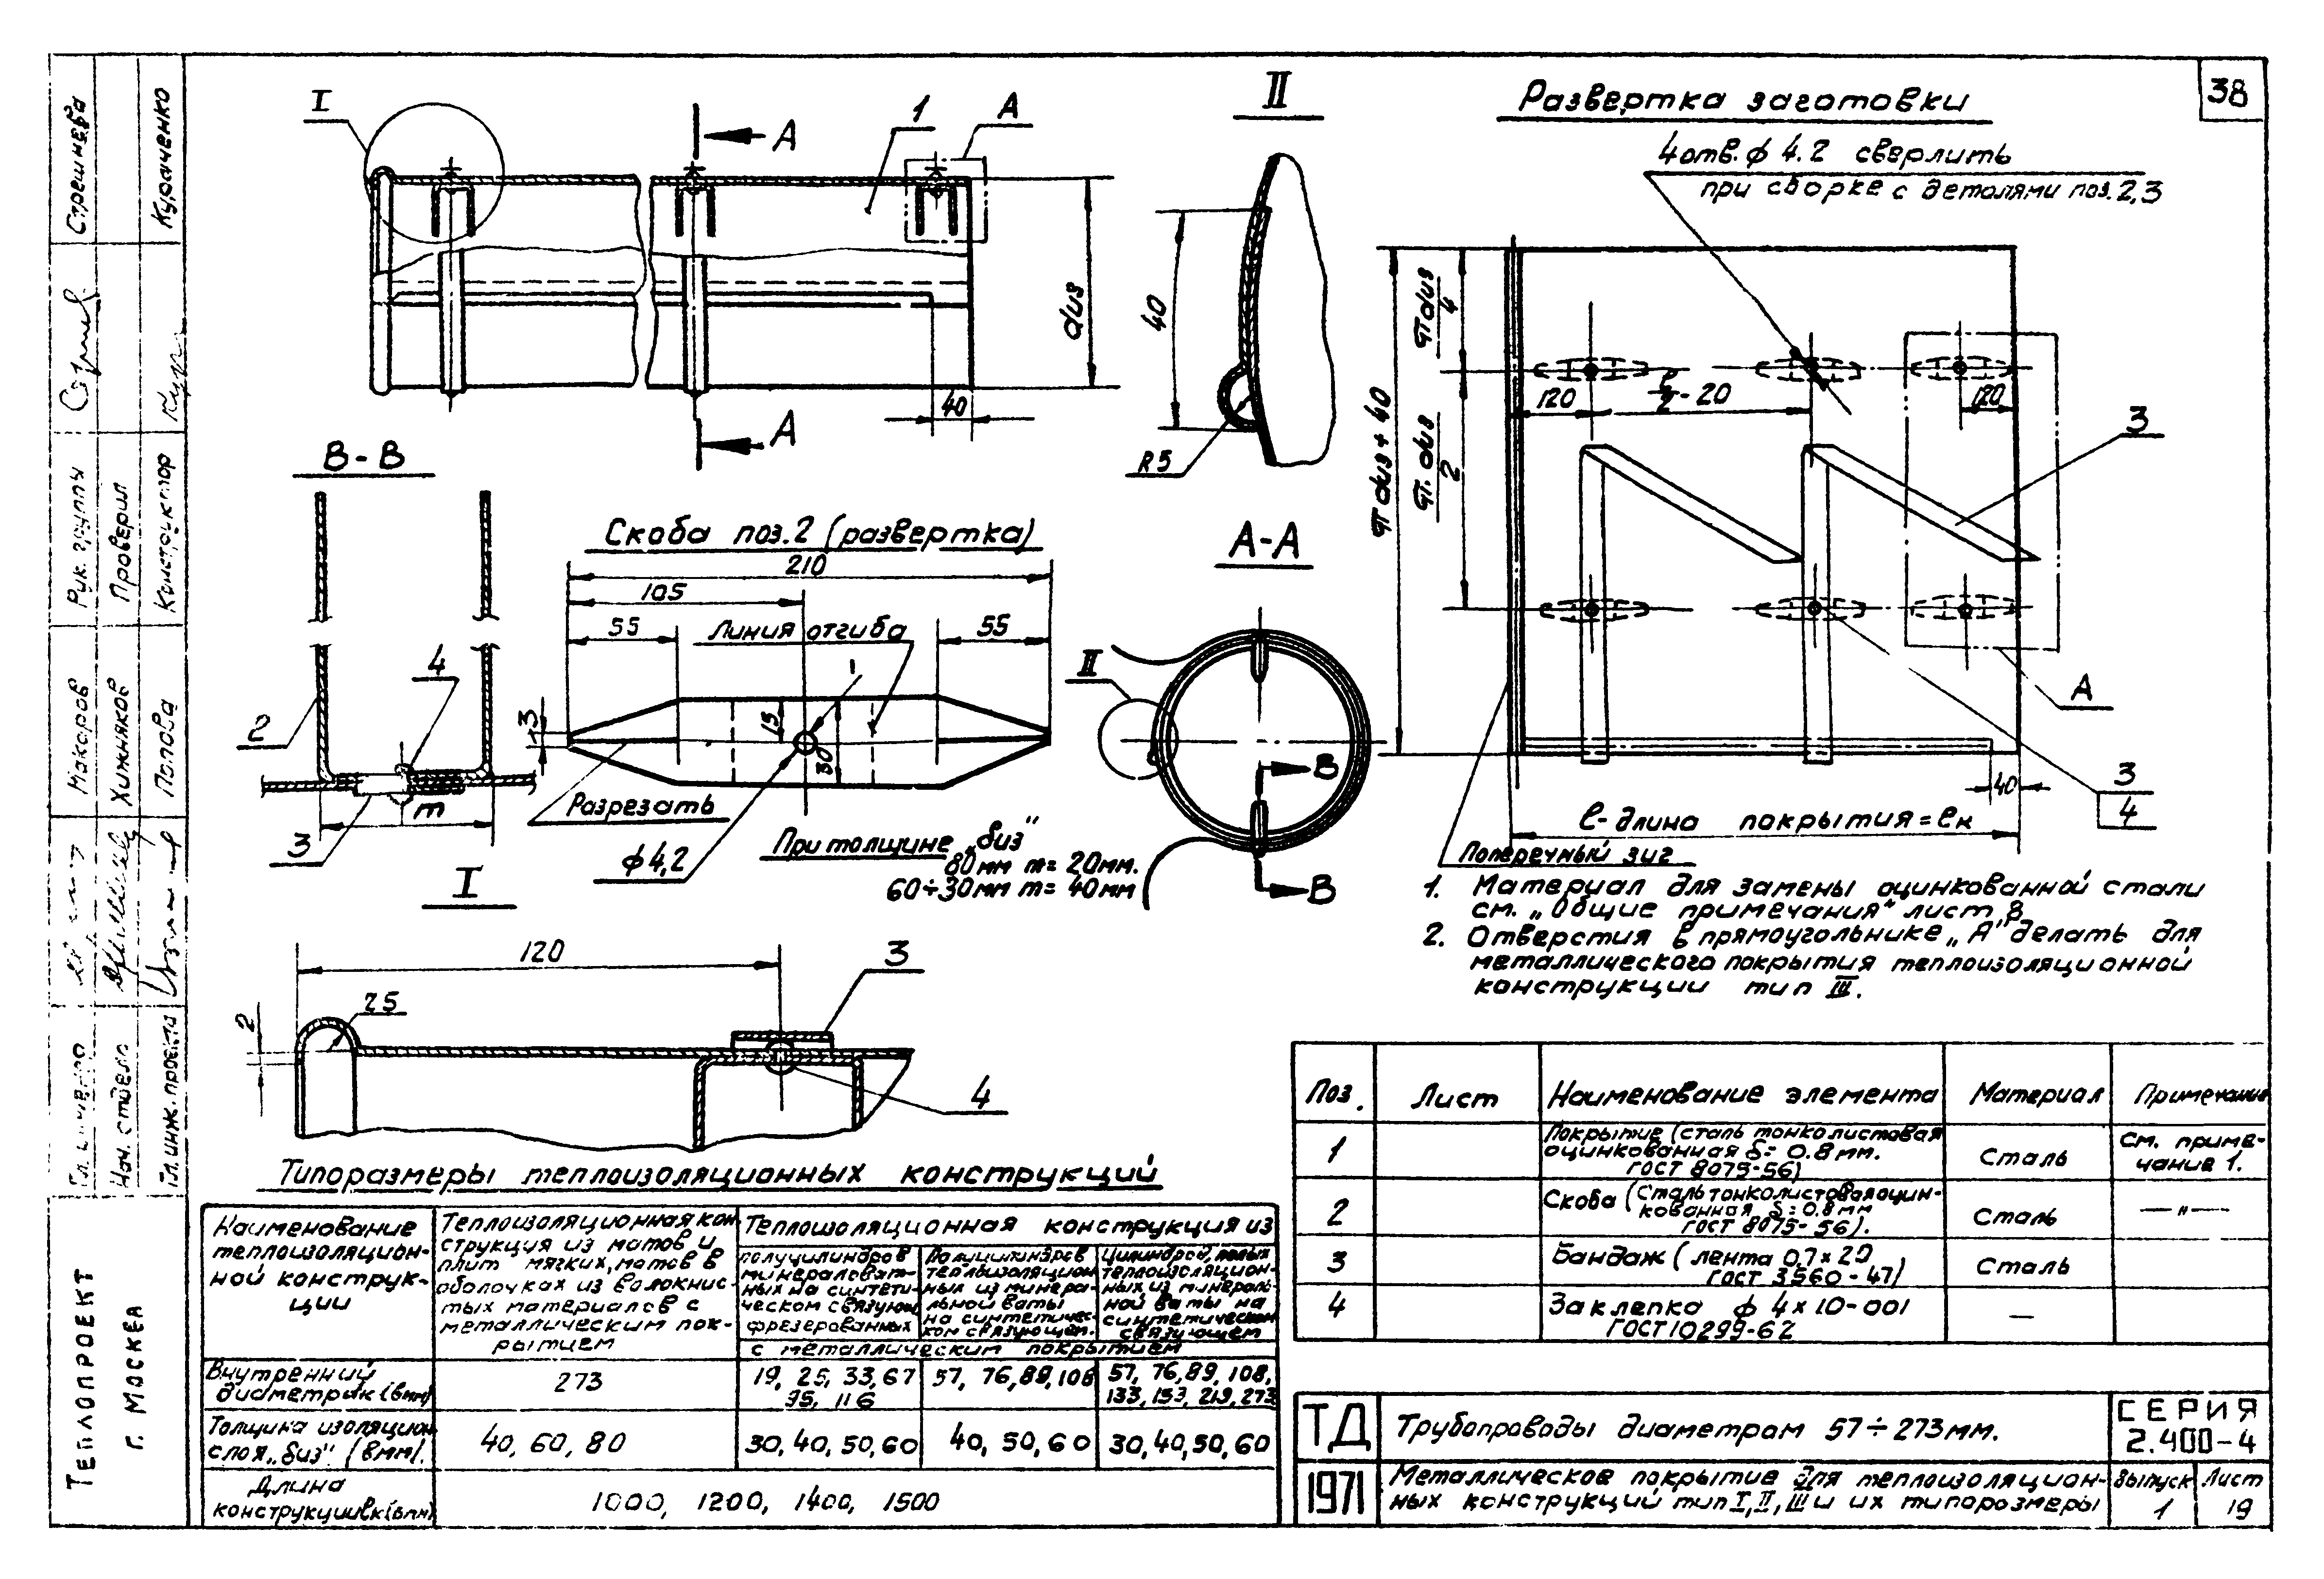 38
I
А
А
1
А
dиз
40
II
40
R5
Развертка заготовки
4 отв. ф 4.2 сверлить
при сборке с деталями поз. 2,3
πdиз + 40
πdиз
4
π·dиз
2
120
ℓ/2 - 20
120
3
А
3
4
40
ℓ-длина покрытия = ℓк
Поперечный зиг
В-В
2
4
3
m
Скоба поз.2 (развертка)
210
105
55
Линия отгиба
55
3
15
30
Разрезать
ф 4,2
При толщине „δиз"
80мм m = 20мм.
60÷30мм m = 40мм
А-А
II
В
В
1. Материал для замены оцинкованной стали
см. „Общие примечания" лист 8
2. Отверстия в прямоугольнике „А" делать для
металлического покрытия теплоизоляционной
конструкции тип III.
I
120
2
3
4
Типоразмеры теплоизоляционных конструкций
Наименование
теплоизоляцион-
ной конструк-
ции
Теплоизоляционная кон
струкция из матов и
плит мягких, матов в
оболочках из волокнис-
тых материалов с
металлическим пок-
рытием
Теплоизоляционная конструкция из
полуцилиндров
минераловат-
ных на синтети-
ческом связующ
фрезерованных
Полуцилиндров
теплоизоляцион
ных из минера-
льной ваты
на синтетичес-
ком связующем.
Цилиндров, полых
теплоизоляцион-
ных из минераль-
ной ваты на
синтетическом
связующем
с металлическим покрытием
Внутренний
диаметр dк (в мм)
273
19, 25, 33, 67
95, 116
57, 76, 89, 108
57, 76, 89, 108,
133, 159, 219, 273
Толщина изоляцион
слоя „δиз" (в мм).
40, 60, 80
30, 40, 50, 60
40, 50, 60
30, 40, 50, 60
Длина
конструкции ℓк (в мм)
1000, 1200, 1400, 1500
Поз.
Лист
Наименование элемента
Материал
Примечание
1
Покрытие (сталь тонколистовая
оцинкованная δ = 0.8 мм.
ГОСТ 8075-56)
Сталь
См. приме-
чание 1.
2
Скоба (Сталь тонколистовая оцин-
кованная δ = 0.8 мм
ГОСТ 8075-56).
Сталь
—"—
3
Бандаж (лента 0,7 × 20
ГОСТ 3560-47)
Сталь
4
Заклепка ф 4×10-001
ГОСТ 10299-62
—
ТД
1971
Трубопроводы диаметром 57÷273мм.
СЕРИЯ
2.400-4
Металлическое покрытие для теплоизоляцион-
ных конструкций тип I, II, III и их типоразмеры
Выпуск
1
Лист
19
ТЕПЛОПРОЕКТ
Г. МОСКВА
Нач. отдела
Гл. инж. проекта
Макоров
Хижняков
Попова
Рук. группы
Проверил
Конструктор
Стрешнева
Кураченко